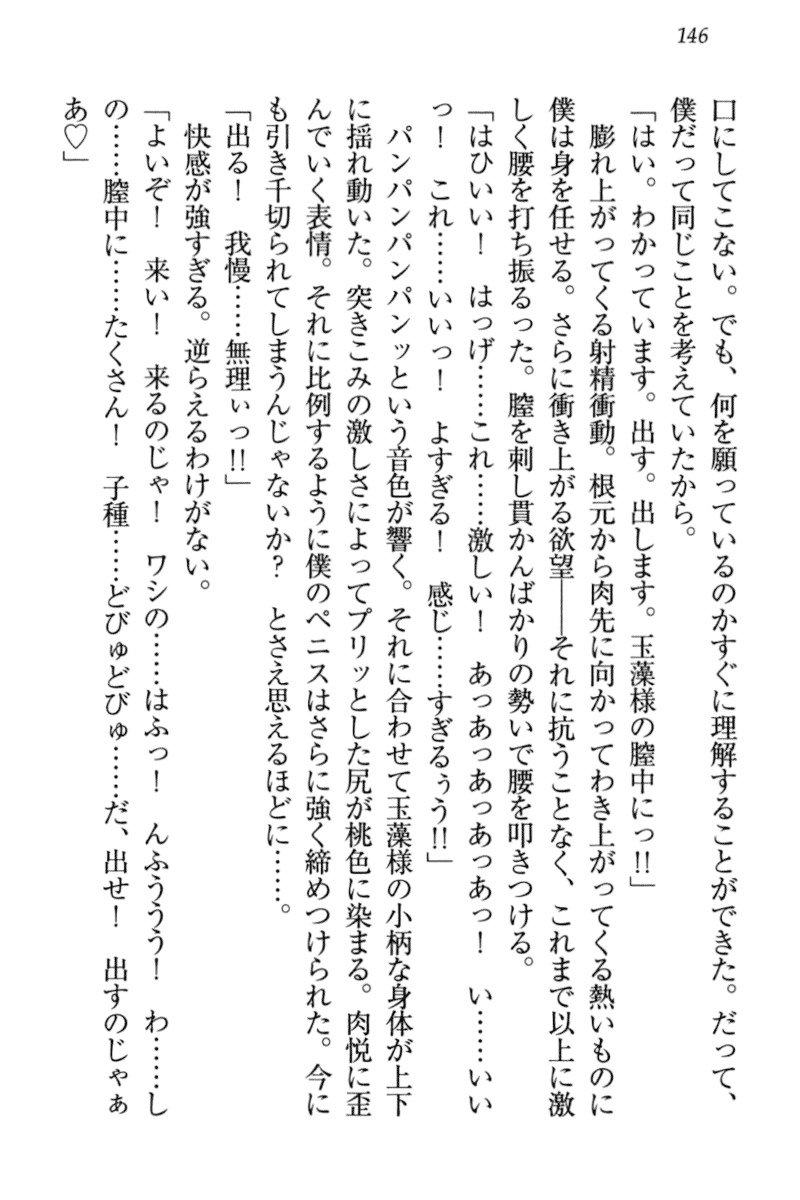 146
口にしてこない。でも、何を願っているのかすぐに理解することができた。だって、
僕だって同じことを考えていたから。
「はい。わかっています。出す。出します。玉藻様の膣中にっ!!」
膨れ上がってくる射精衝動。根元から肉先に向かってわき上がってくる熱いものに
僕は身を任せる。さらに衝き上がる欲望――それに抗うことなく、これまで以上に激
しく腰を打ち振るった。膣を刺し貫かんばかりの勢いで腰を叩きつける。
「はひいい!　はっげ……これ……激しい!　あっあっあっあっあっ!　い……いい
っ!　これ……いいっ!　よすぎる!　感じ……すぎるぅう!!」
パンパンパンパンッという音色が響く。それに合わせて玉藻様の小柄な身体が上下
に揺れ動いた。突きこみの激しさによってプリッとした尻が桃色に染まる。肉悦に歪
んでいく表情。それに比例するように僕のペニスはさらに強く締めつけられた。今に
も引き千切られてしまうんじゃないか?　とさえ思えるほどに……。
「出る!　我慢……無理ぃっ!!」
快感が強すぎる。逆らえるわけがない。
「よいぞ!　来い!　来るのじゃ!　ワシの……はふっ!　んふううう!　わ……し
の……膣中に……たくさん!　子種……どびゅどびゅ……だ、出せ!　出すのじゃぁ
あ♡」